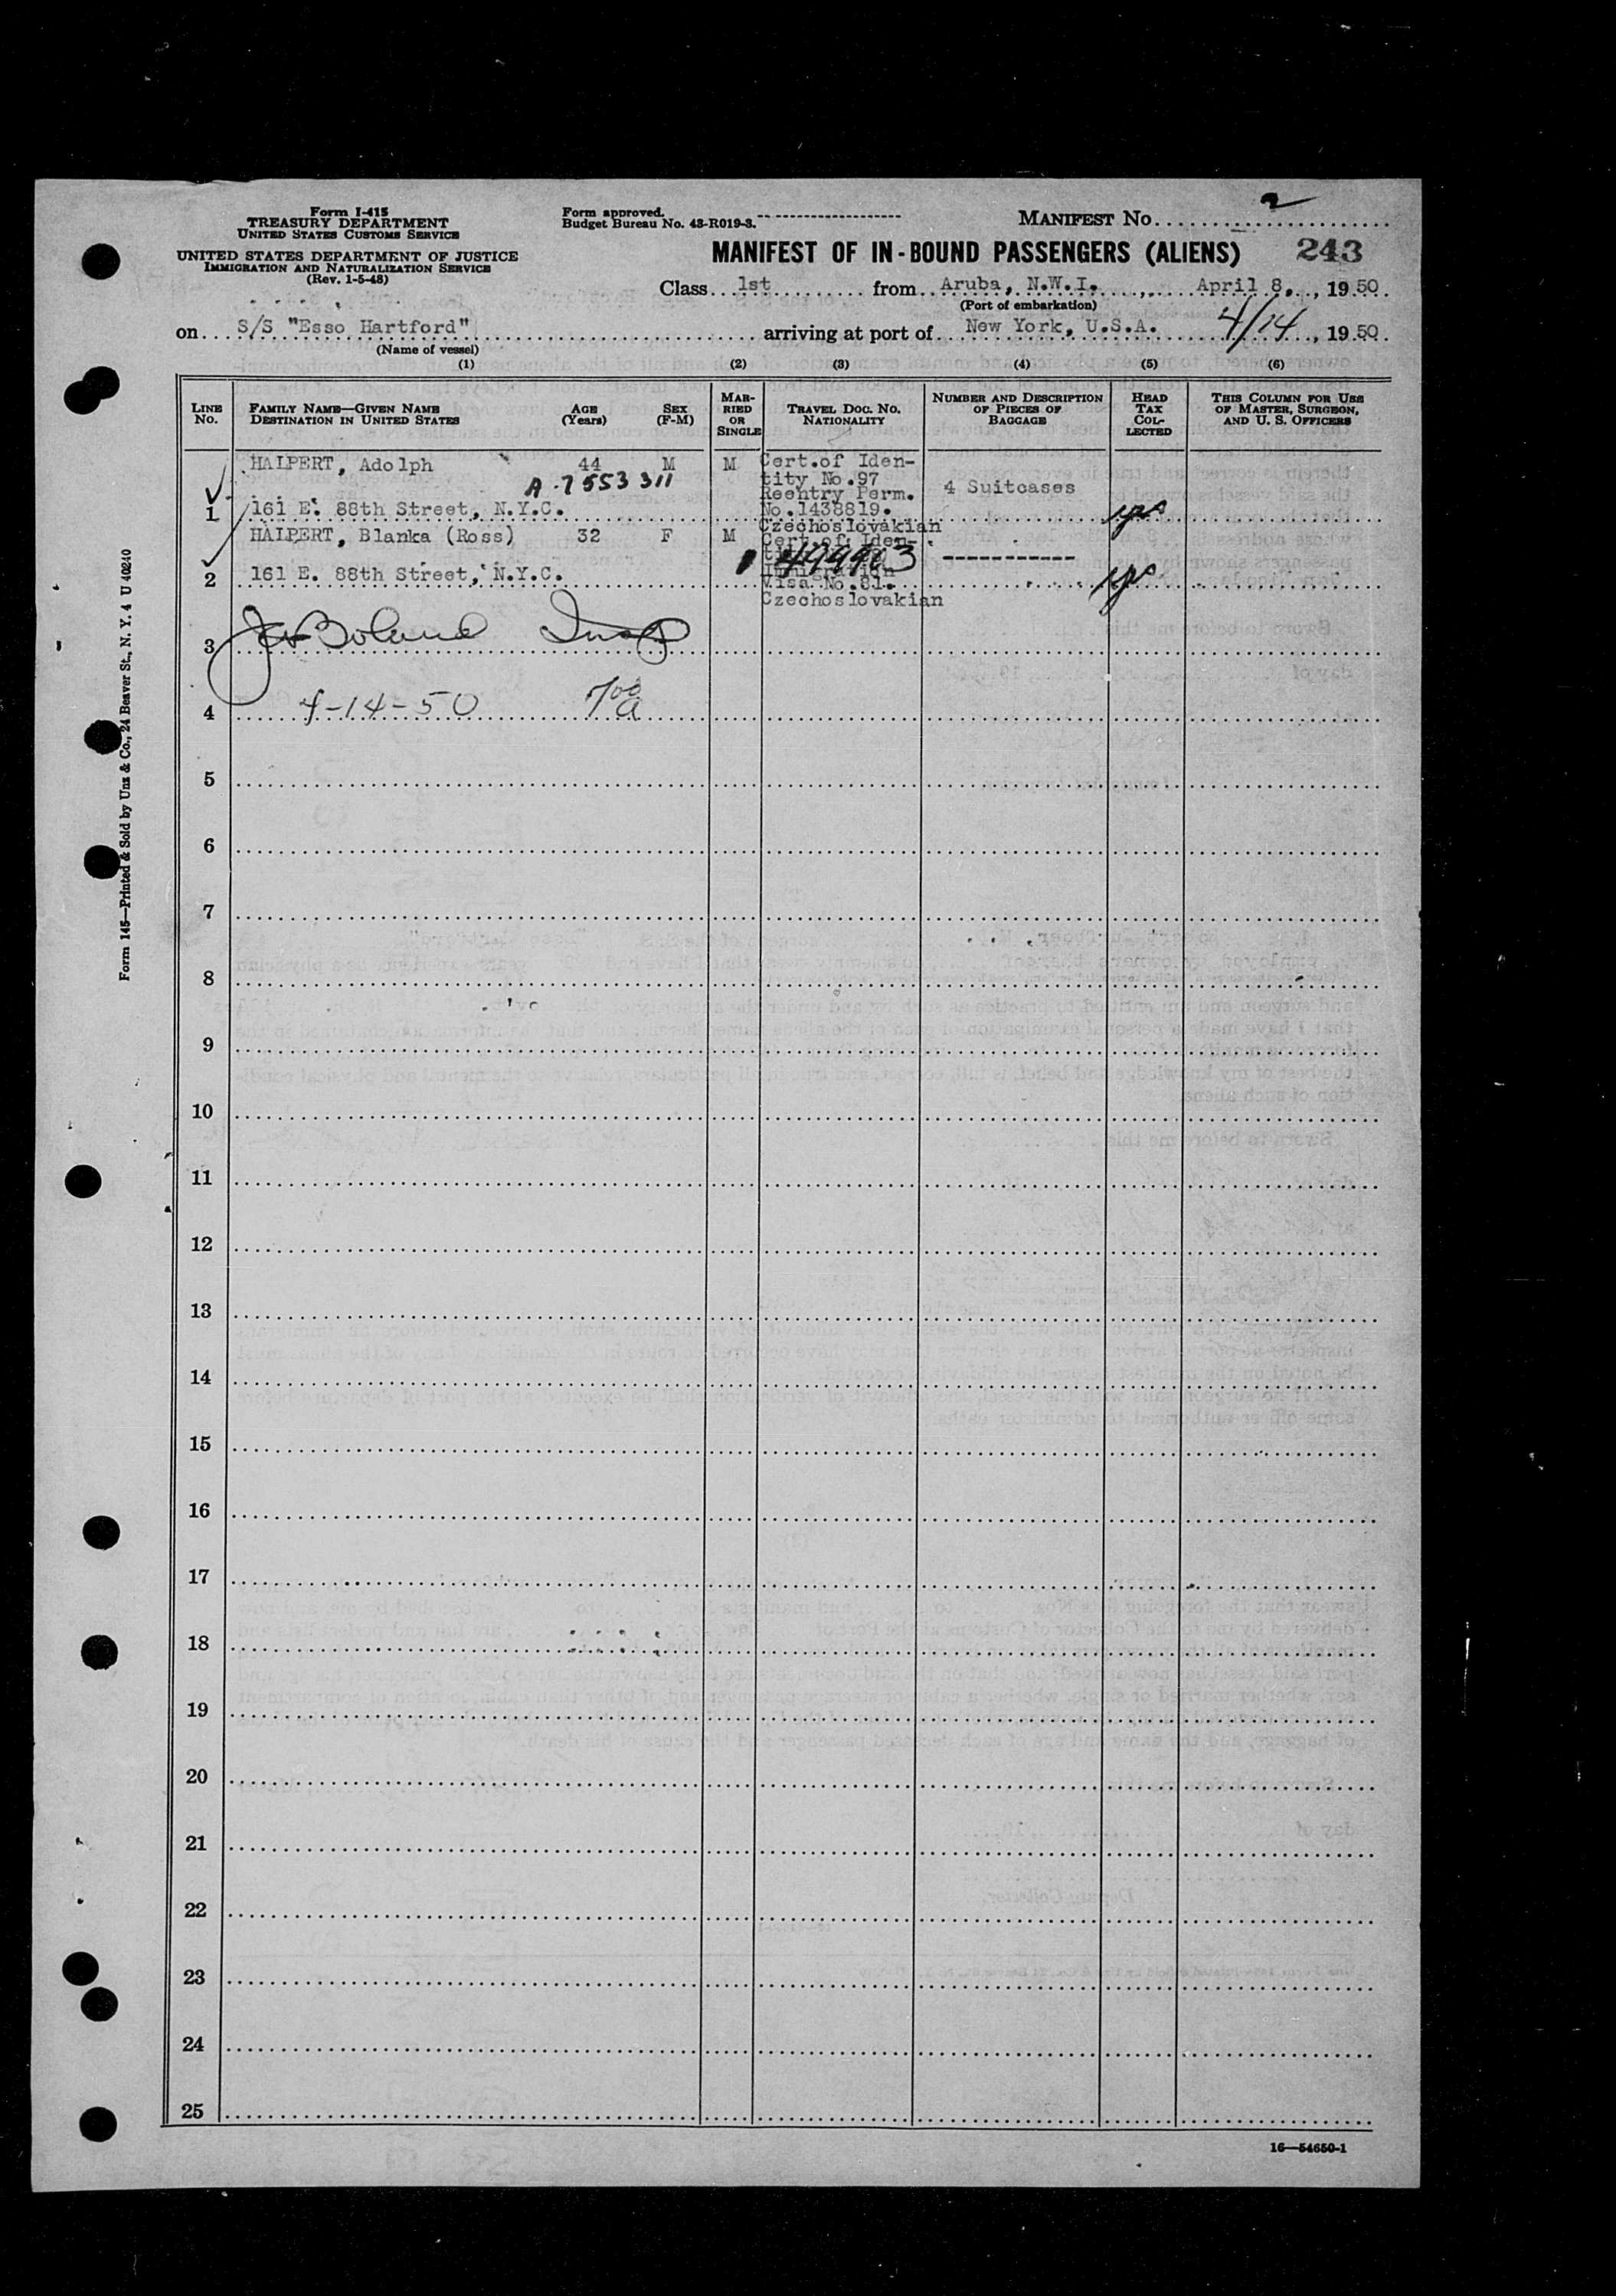 Form I-415
TREASURY DEPARTMENT
UNITED STATES CUSTOMS SERVICE
UNITED STATES DEPARTMENT OF JUSTICE
IMMIGRATION AND NATURALIZATION SERVICE
(Rev. 1-5-48)
Form approved.
Budget Bureau No. 43-R019-3.
MANIFEST No. 2
MANIFEST OF IN-BOUND PASSENGERS (ALIENS) 243
Class 1st from Aruba, N.W.I., April 8, 1950
(Port of embarkation)
on S/S "Esso Hartford" arriving at port of New York, U.S.A. 4/14, 1950
(Name of vessel)
(1) (2) (3) (4) (5) (6)
LINE No. FAMILY NAME—GIVEN NAME DESTINATION IN UNITED STATES AGE (Years) SEX (F-M) MARRIED OR SINGLE TRAVEL DOC. No. NATIONALITY NUMBER AND DESCRIPTION OF PIECES OF BAGGAGE HEAD TAX COLLECTED THIS COLUMN FOR USE OF MASTER, SURGEON, AND U. S. OFFICERS
HALPERT, Adolph 44 M M Cert.of Iden-
A-7553311 tity No.97
Reentry Perm. 4 Suitcases
1 161 E. 88th Street, N.Y.C. No.1438819. yes
Czechoslovakian
HALPERT, Blanka (Ross) 32 F M Cert.of Iden-
499903 -----------
Immigration
2 161 E. 88th Street, N.Y.C. Visa No.81. yes
Czechoslovakian
3 Boland Insp
4 4-14-50 700 a
5
6
7
8
9
10
11
12
13
14
15
16
17
18
19
20
21
22
23
24
25
16—54650-1
Form 145—Printed & Sold by Unz & Co., 24 Beaver St., N. Y. 4 U 40240